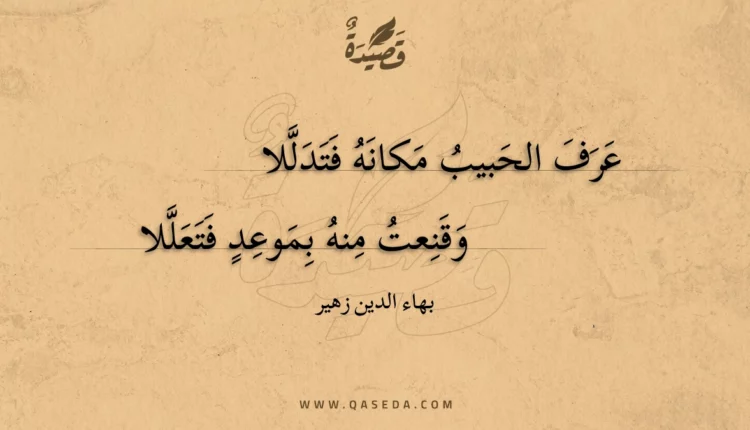 قَصِيدَةٌ
عَرَفَ الحَبيبُ مَكانَهُ فَتَدَلَّلا
وَقَنِعتُ مِنهُ بِمَوعِدٍ فَتَعَلَّلا
بهاء الدين زهير
WWW.QASEDA.COM